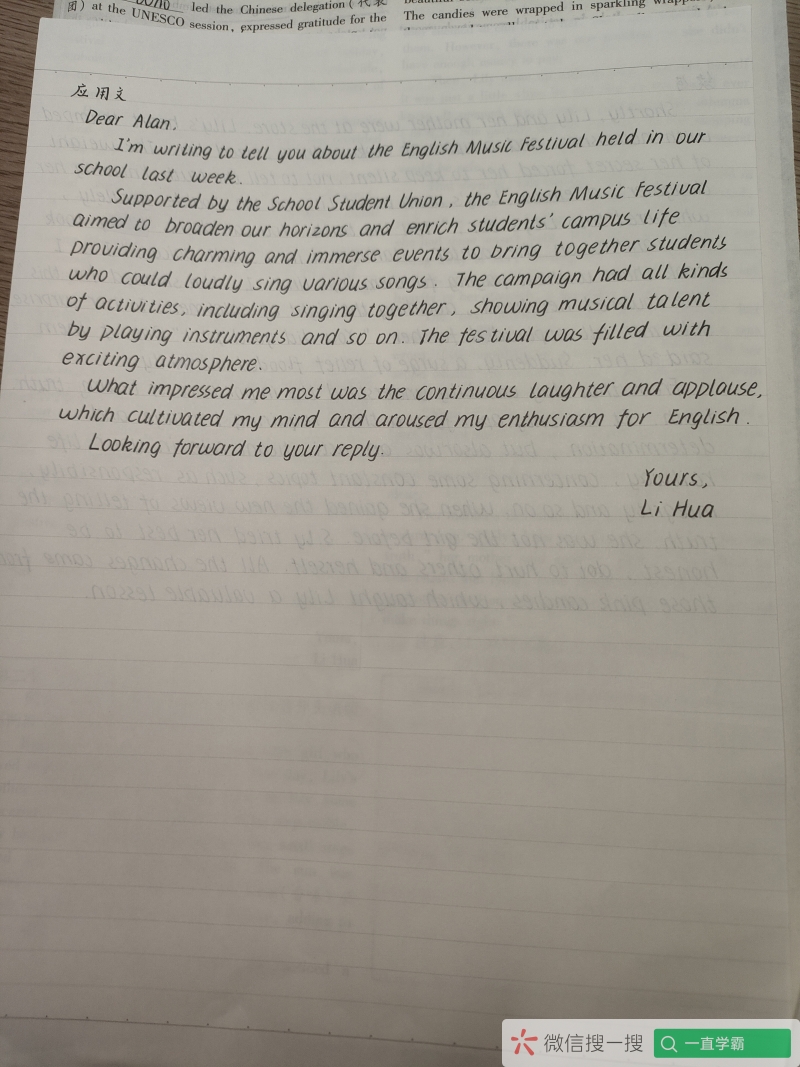 团) at the UNESCO session, expressed gratitude for the
led the Chinese delegation (代表
The candies were wrapped in sparkling
应用文
Dear Alan,
I'm writing to tell you about the English Music Festival held in our
school last week.
Supported by the School Student Union, the English Music Festival
aimed to broaden our horizons and enrich students' campus life
providing charming and immerse events to bring together students
who could loudly sing various songs. The campaign had all kinds
of activities, including singing together, showing musical talent
by playing instruments and so on. The festival was filled with
exciting atmosphere.
What impressed me most was the continuous laughter and applause,
which cultivated my mind and aroused my enthusiasm for English.
Looking forward to your reply.
Yours,
Li Hua
微信搜一搜
一直学霸